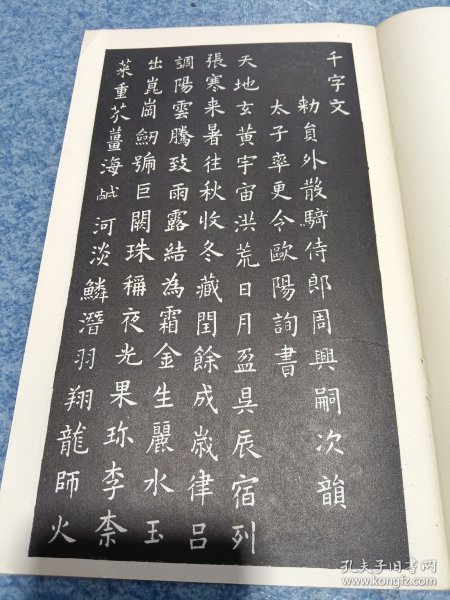 千字文
勑員外散騎侍郎周興嗣次韻
太子率更令歐陽詢書
天地玄黃宇宙洪荒日月盈昃辰宿列
張寒来暑往秋收冬藏閏餘成歲律呂
調陽雲騰致雨露結為霜金生麗水玉
出崑崗劒號巨闕珠稱夜光果珎李柰
菜重芥薑海鹹河淡鱗潛羽翔龍師火
孔夫子旧书网
www.kongfz.com